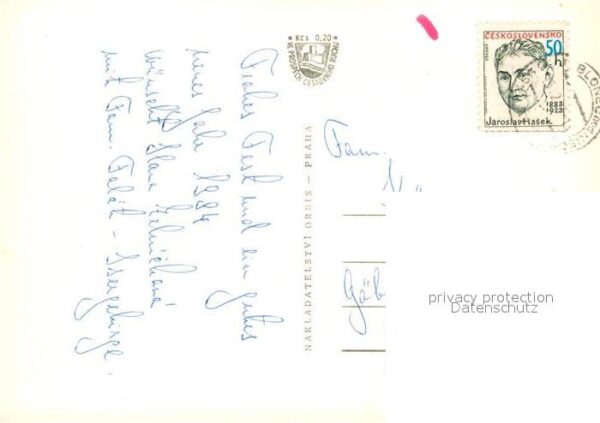 Frohes Fest und ein gutes
neues Jahr 1984
wünscht Hana
mit Fam. - Isergebirge.
Kčs 0,20
VE PROSPĚCH CESTOVNÍHO RUCHU
NAKLADATELSTVÍ ORBIS – PRAHA
ČESKOSLOVENSKO
50 h
1883
1923
Jaroslav Hašek
Fam.
privacy protection
Datenschutz